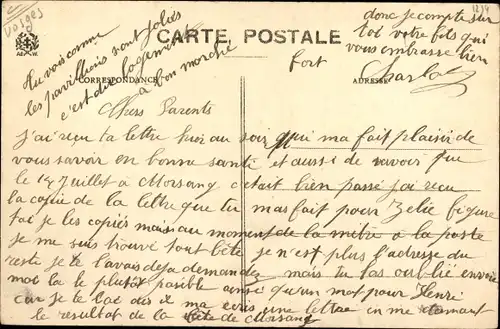 Vosges
1274
Tu vois comme
les pavillons sont jolis
c'est du logement
a bon marché
CARTE POSTALE
donc je compte sur
toi votre fils qui
vous embrasse bien
fort
Charlot
CORRESPONDANCE
ADRESSE
Chers Parents
J'ai reçu ta lettre hier au soir qui m'a fait plaisir de
vous savoir en bonne santé et aussi de savoir que
le 14 Juillet à Morsang c'etait bien passé j'ai reçu
la copie de la lettre que tu m'as fait pour Zelie
je les copiés mais au moment de la mètre a la poste
je me suis trouvé tout bête je n'est plus l'adresse du
reste je te l'avais deja demandez mais tu las oublié envoie
moi la le plutôt posible ainsi qu'un mot pour Henri
car je te lai dis il ma ecris une lettre en me demant
le resultat de la fête de Morsang